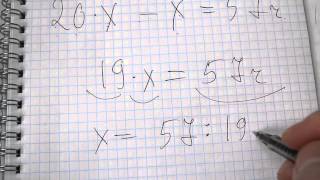 20·x – x = 57г
19·x = 57г
x = 57:19